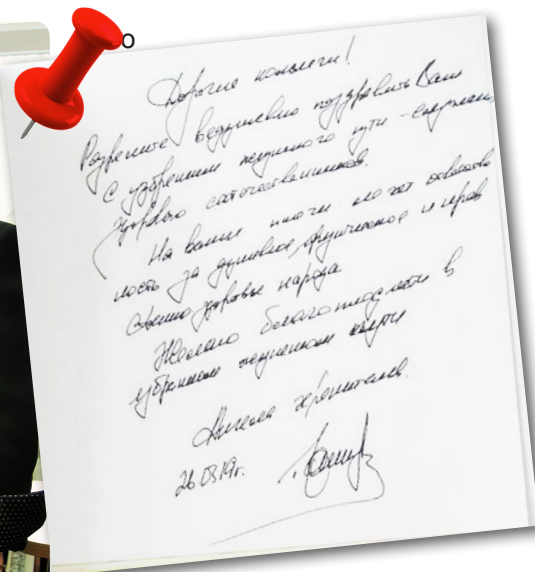 о
Дорогие коллеги!
Разрешите поздравить Вас
с избранием жизненного пути -
здоровья соотечественников.
На ваши плечи ложат ответствен
ность за душевное, физическое и нрав
ственно здоровье народа
Желаю благо в
избранном жизненном пути
Ангела хранителя.
26.03.19г.